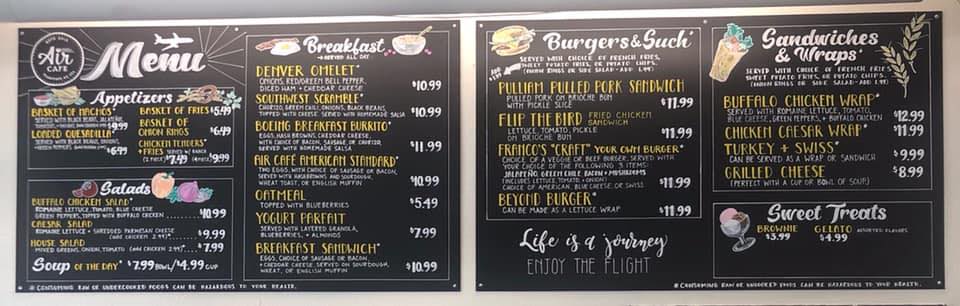 ESTD 2015
Air
CAFE
Menu
Appetizers
BASKET OF NACHOS
SERVED WITH BLACK BEANS, JALAPEÑO,
$9.99
LOADED QUESADILLA*
SERVED WITH BLACK BEANS, ONIONS,
$6.49
BASKET OF FRIES $5.49
BASKET OF
ONION RINGS $6.49
CHICKEN TENDERS*
+ FRIES SERVED W/ RANCH
(2 PIECE) $7.49 (4 PIECE) $9.99
Salads
BUFFALO CHICKEN SALAD*
ROMAINE LETTUCE, TOMATO, BLUE CHEESE
GREEN PEPPERS, TOPPED WITH BUFFALO CHICKEN ........ $10.99
CAESAR SALAD
ROMAINE LETTUCE + SHREDDED PARMESAN CHEESE
(ADD CHICKEN 2.99)* ........ $9.99
HOUSE SALAD
MIXED GREENS, ONION, TOMATO (ADD CHICKEN 2.99)* .. $7.99
Soup OF THE DAY* $7.99 BOWL/$4.99 CUP
* CONSUMING RAW OR UNDERCOOKED FOODS CAN BE HAZARDOUS TO YOUR HEALTH.
Breakfast
SERVED ALL DAY
DENVER OMELET*
ONIONS, RED/GREEN BELL PEPPER,
DICED HAM + CHEDDAR CHEESE $10.99
SOUTHWEST SCRAMBLE*
CHORIZO, GREEN CHILI, ONIONS, BLACK BEANS,
TOPPED WITH CHEESE. SERVED WITH HOMEMADE SALSA $10.99
BOEING BREAKFAST BURRITO*
EGGS, HASH BROWNS, CHEDDAR CHEESE,
WITH CHOICE OF BACON, SAUSAGE, OR CHORIZO,
SERVED WITH HOMEMADE SALSA $11.99
AIR CAFE AMERICAN STANDARD*
TWO EGGS, WITH CHOICE OF SAUSAGE OR BACON,
SERVED WITH HASHBROWNS AND SOURDOUGH,
WHEAT TOAST, OR ENGLISH MUFFIN $10.99
OATMEAL
TOPPED WITH BLUEBERRIES $5.49
YOGURT PARFAIT
SERVED WITH LAYERED GRANOLA,
BLUEBERRIES, + ALMONDS $7.99
BREAKFAST SANDWICH*
EGGS, CHOICE OF SAUSAGE OR BACON,
+ CHEDDAR CHEESE. SERVED ON SOURDOUGH,
WHEAT, OR ENGLISH MUFFIN $10.99
Burgers & Such*
SERVED WITH CHOICE OF FRENCH FRIES,
SWEET POTATO FRIES, OR POTATO CHIPS.
(ONION RINGS OR SIDE SALAD - ADD 1.99)
PULLIAM PULLED PORK SANDWICH
PULLED PORK ON BRIOCHE BUN
WITH PICKLE SLICE $11.99
FLIP THE BIRD FRIED CHICKEN SANDWICH
LETTUCE, TOMATO, PICKLE
ON BRIOCHE BUN $11.99
FRANCO'S "CRAFT" YOUR OWN BURGER*
CHOICE OF A VEGGIE OR BEEF BURGER, SERVED WITH
YOUR CHOICE OF THE FOLLOWING 3 ITEMS:
JALAPEÑO, GREEN CHILE, BACON, + MUSHROOMS
(INCLUDES LETTUCE, TOMATO, + ONION)
CHOICE OF AMERICAN, BLUE CHEESE, OR SWISS $11.99
BEYOND BURGER*
CAN BE MADE AS A LETTUCE WRAP $11.99
Life is a journey
ENJOY THE FLIGHT
Sandwiches
& Wraps*
SERVED WITH CHOICE OF FRENCH FRIES,
SWEET POTATO FRIES, OR POTATO CHIPS.
(ONION RINGS OR SIDE SALAD - ADD 1.99)
BUFFALO CHICKEN WRAP*
SERVED WITH ROMAINE LETTUCE, TOMATO,
BLUE CHEESE, GREEN PEPPERS, + BUFFALO CHICKEN $12.99
CHICKEN CAESAR WRAP* $11.99
TURKEY + SWISS*
CAN BE SERVED AS A WRAP OR SANDWICH $9.99
GRILLED CHEESE
(PERFECT WITH A CUP OR BOWL OF SOUP) $8.99
Sweet Treats
BROWNIE $3.99
GELATO ASSORTED FLAVORS $4.99
* CONSUMING RAW OR UNCOOKED FOODS CAN BE HAZARDOUS TO YOUR HEALTH.